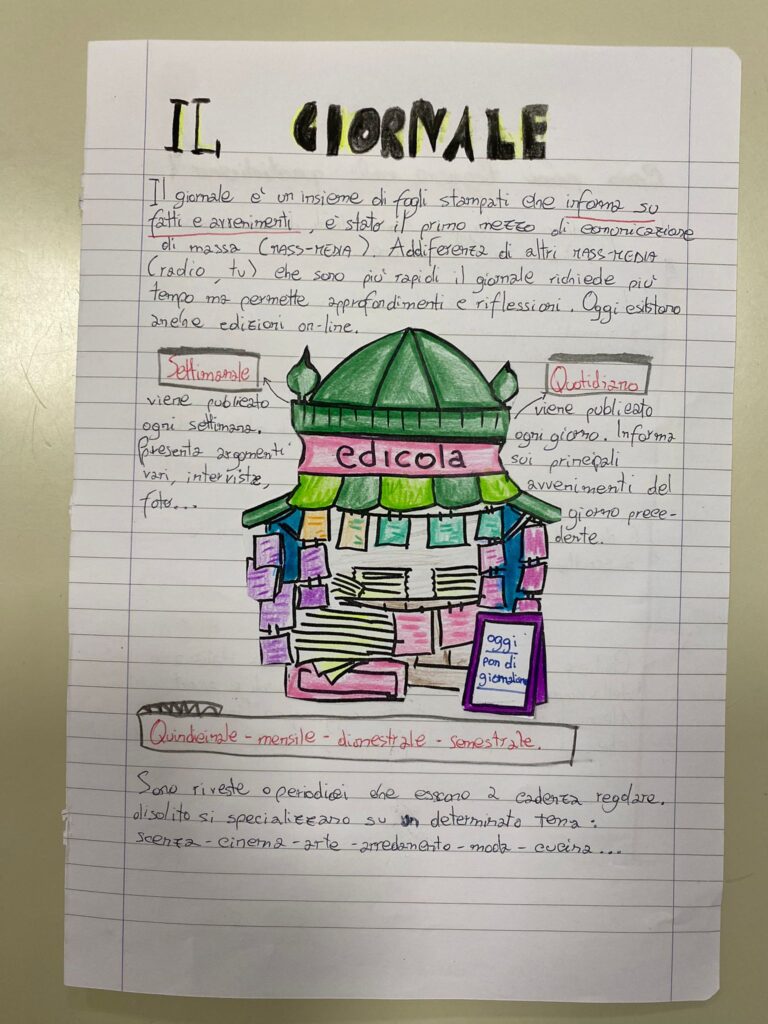 IL GIORNALE
Il giornale è un insieme di fogli stampati che informa su
fatti e avvenimenti, è stato il primo mezzo di comunicazione
di massa (MASS-MEDIA). Addiferenza di altri MASS-MEDIA
(radio, tv) che sono più rapidi il giornale richiede più
tempo ma permette approfondimenti e riflessioni. Oggi esistono
anche edizioni on-line.
Settimanale
viene publicato
ogni settimana.
Presenta argomenti
vari, interviste,
foto...
Quotidiano
viene publicato
ogni giorno. Informa
sui principali
avvenimenti del
giorno prece-
dente.
edicola
oggi
pan di
Quindicinale - mensile - dimestrale - semestrale.
Sono riveste o periodici che escono a cadenza regolare.
disolito si specializzano su un determinato tema:
scenza - cinema - arte - arredamento - moda - cucina...